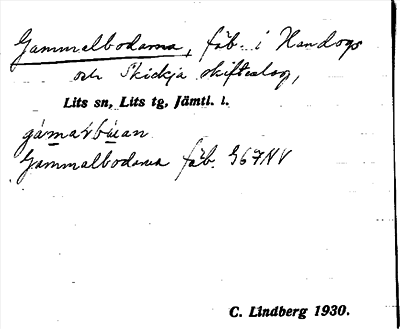 Gammelbodarna, fäb. i Handogs
och Skickja skifteslag,
Lits sn, Lits tg, Jämtl. l.
gámarbùan
Gammalbodarna fäb. G67NV
C. Lindberg 1930.